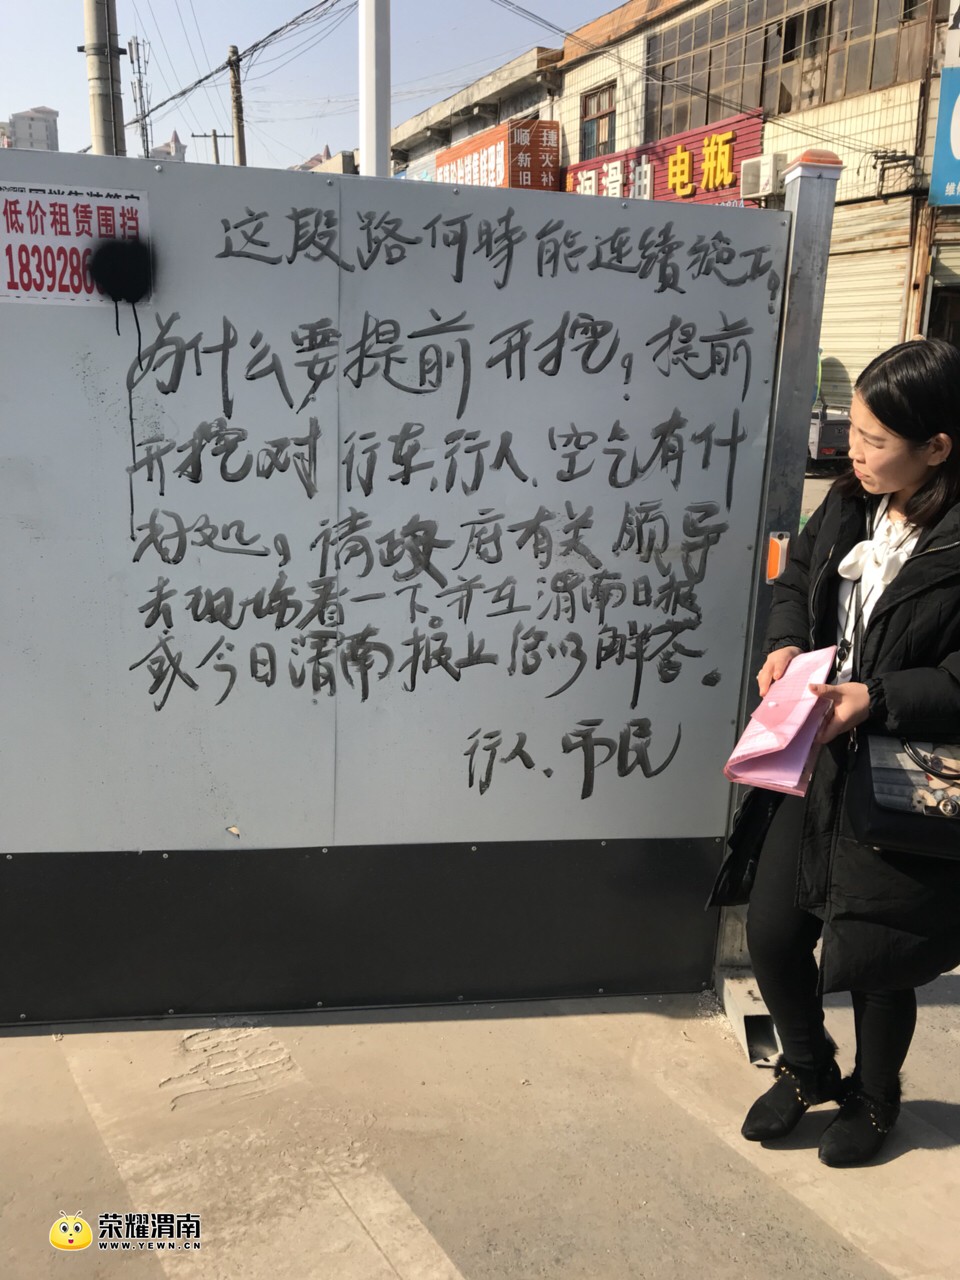 低价租赁围挡
1839286
顺捷
火
新
旧补
润滑油 电瓶
维修
这段路何时能连续施工,
为什么要提前开挖,提前
开挖对行车、行人、空气有什
好处,请政府有关领导
去现场看一下。并在渭南日报
或今日渭南报上给以解答。
行人、市民
荣耀渭南
WWW.YEWN.CN